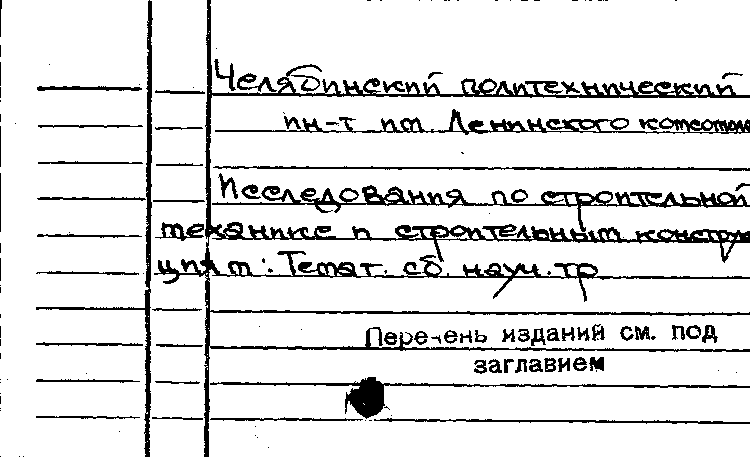 Челябинский политехнический
ин-т им. Ленинского комсомола
Исследования по строительной
механике и строительным конструк
циям: Темат. сб. науч. тр
Перечень изданий см. под
заглавием